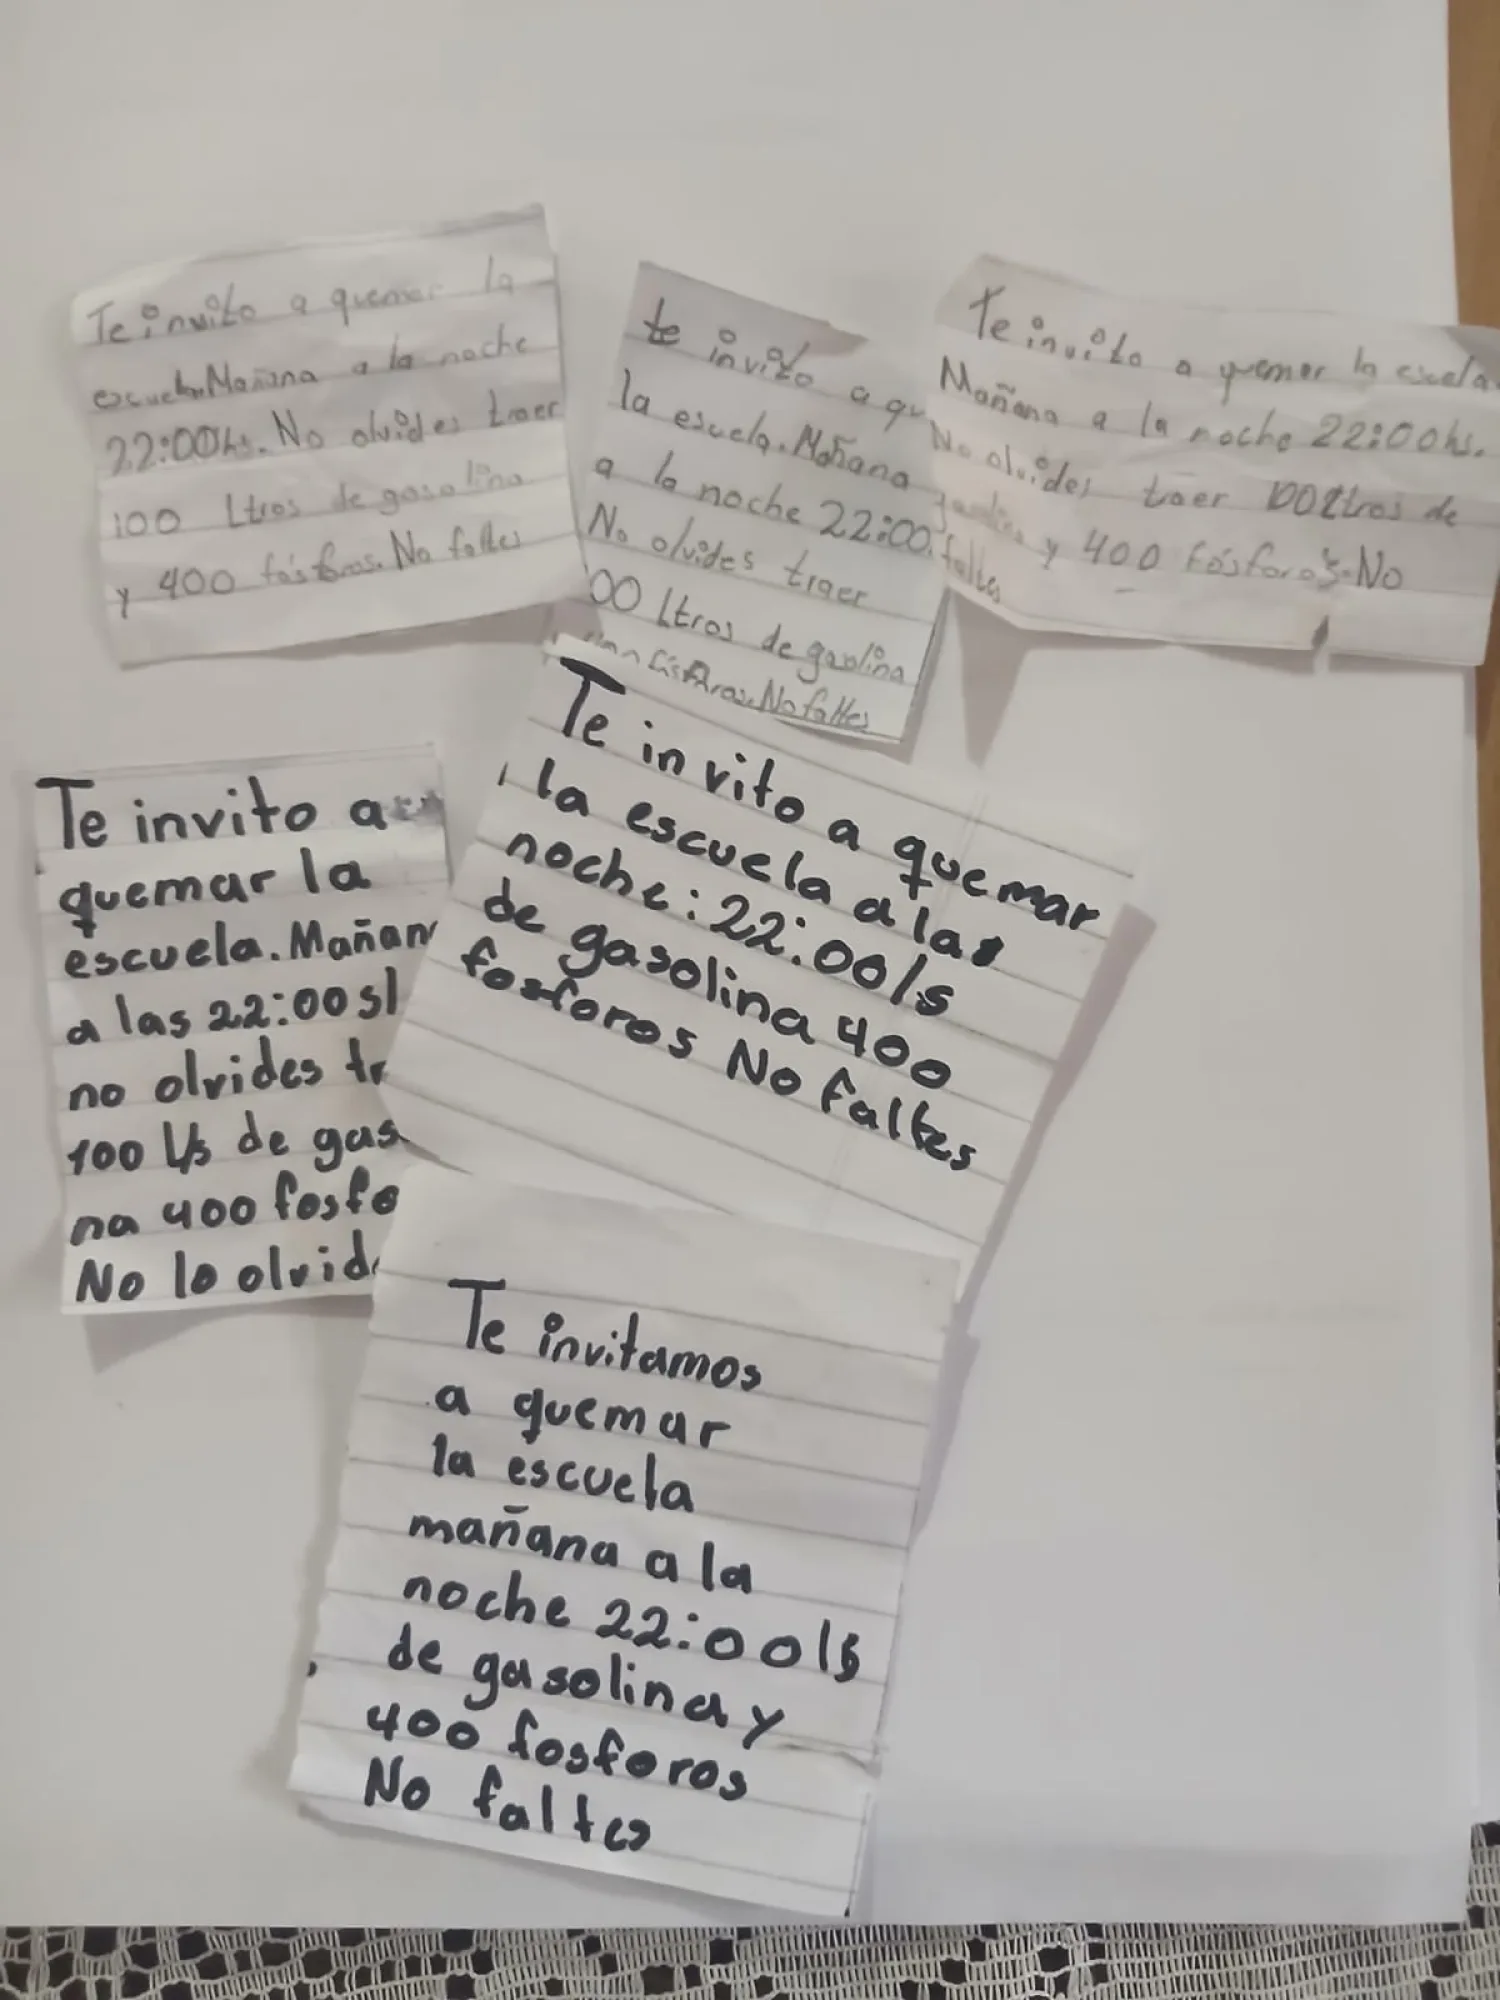 Te invito a quemar la
escuela. Mañana a la noche
22:00hs. No olvides traer
100 Ltros de gasolina
y 400 fósforos. No faltes
te invito a qu
la escuela. Mañana
a la noche 22:00.
No olvides traer
00 Ltros de gaolina
fósforos. No faltes
Te invito a quemar la escuela
Mañana a la noche 22:00hs.
No olvides traer 100 Ltros de
y 400 fósforos. No
faltes
Te invito a
quemar la
escuela. Mañan
a las 22:00 sl
no olvides tr
100 l/s de gas
na 400 fosfo
No lo olvid
Te invito a quemar
la escuela a las
noche: 22:00/s
de gasolina 400
fosforos No faltes
Te invitamos
a quemar
la escuela
mañana a la
noche 22:00ls
de gasolina y
400 fosforos
No faltes